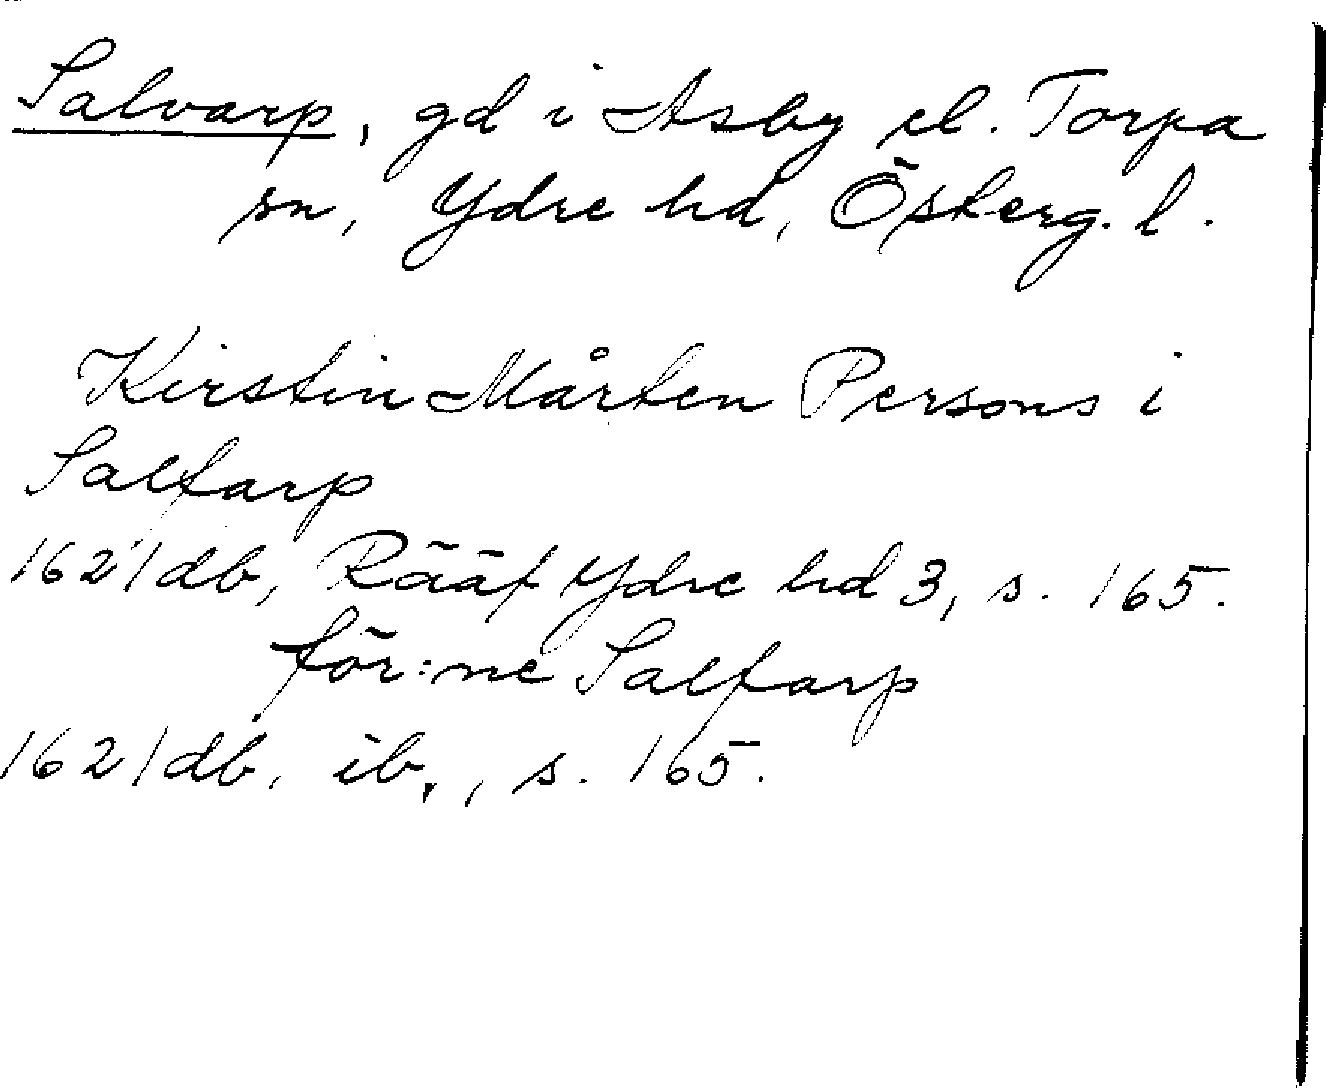 Salvarp, gd i Asby el. Torpa
sn, Ydre hd, Österg. l.
Kirstin Mårten Persons i
Salfarp
1621 db, Rääf Ydre hd 3, s. 165.
för:ne Salfarp
1621 db, ib., s. 165.